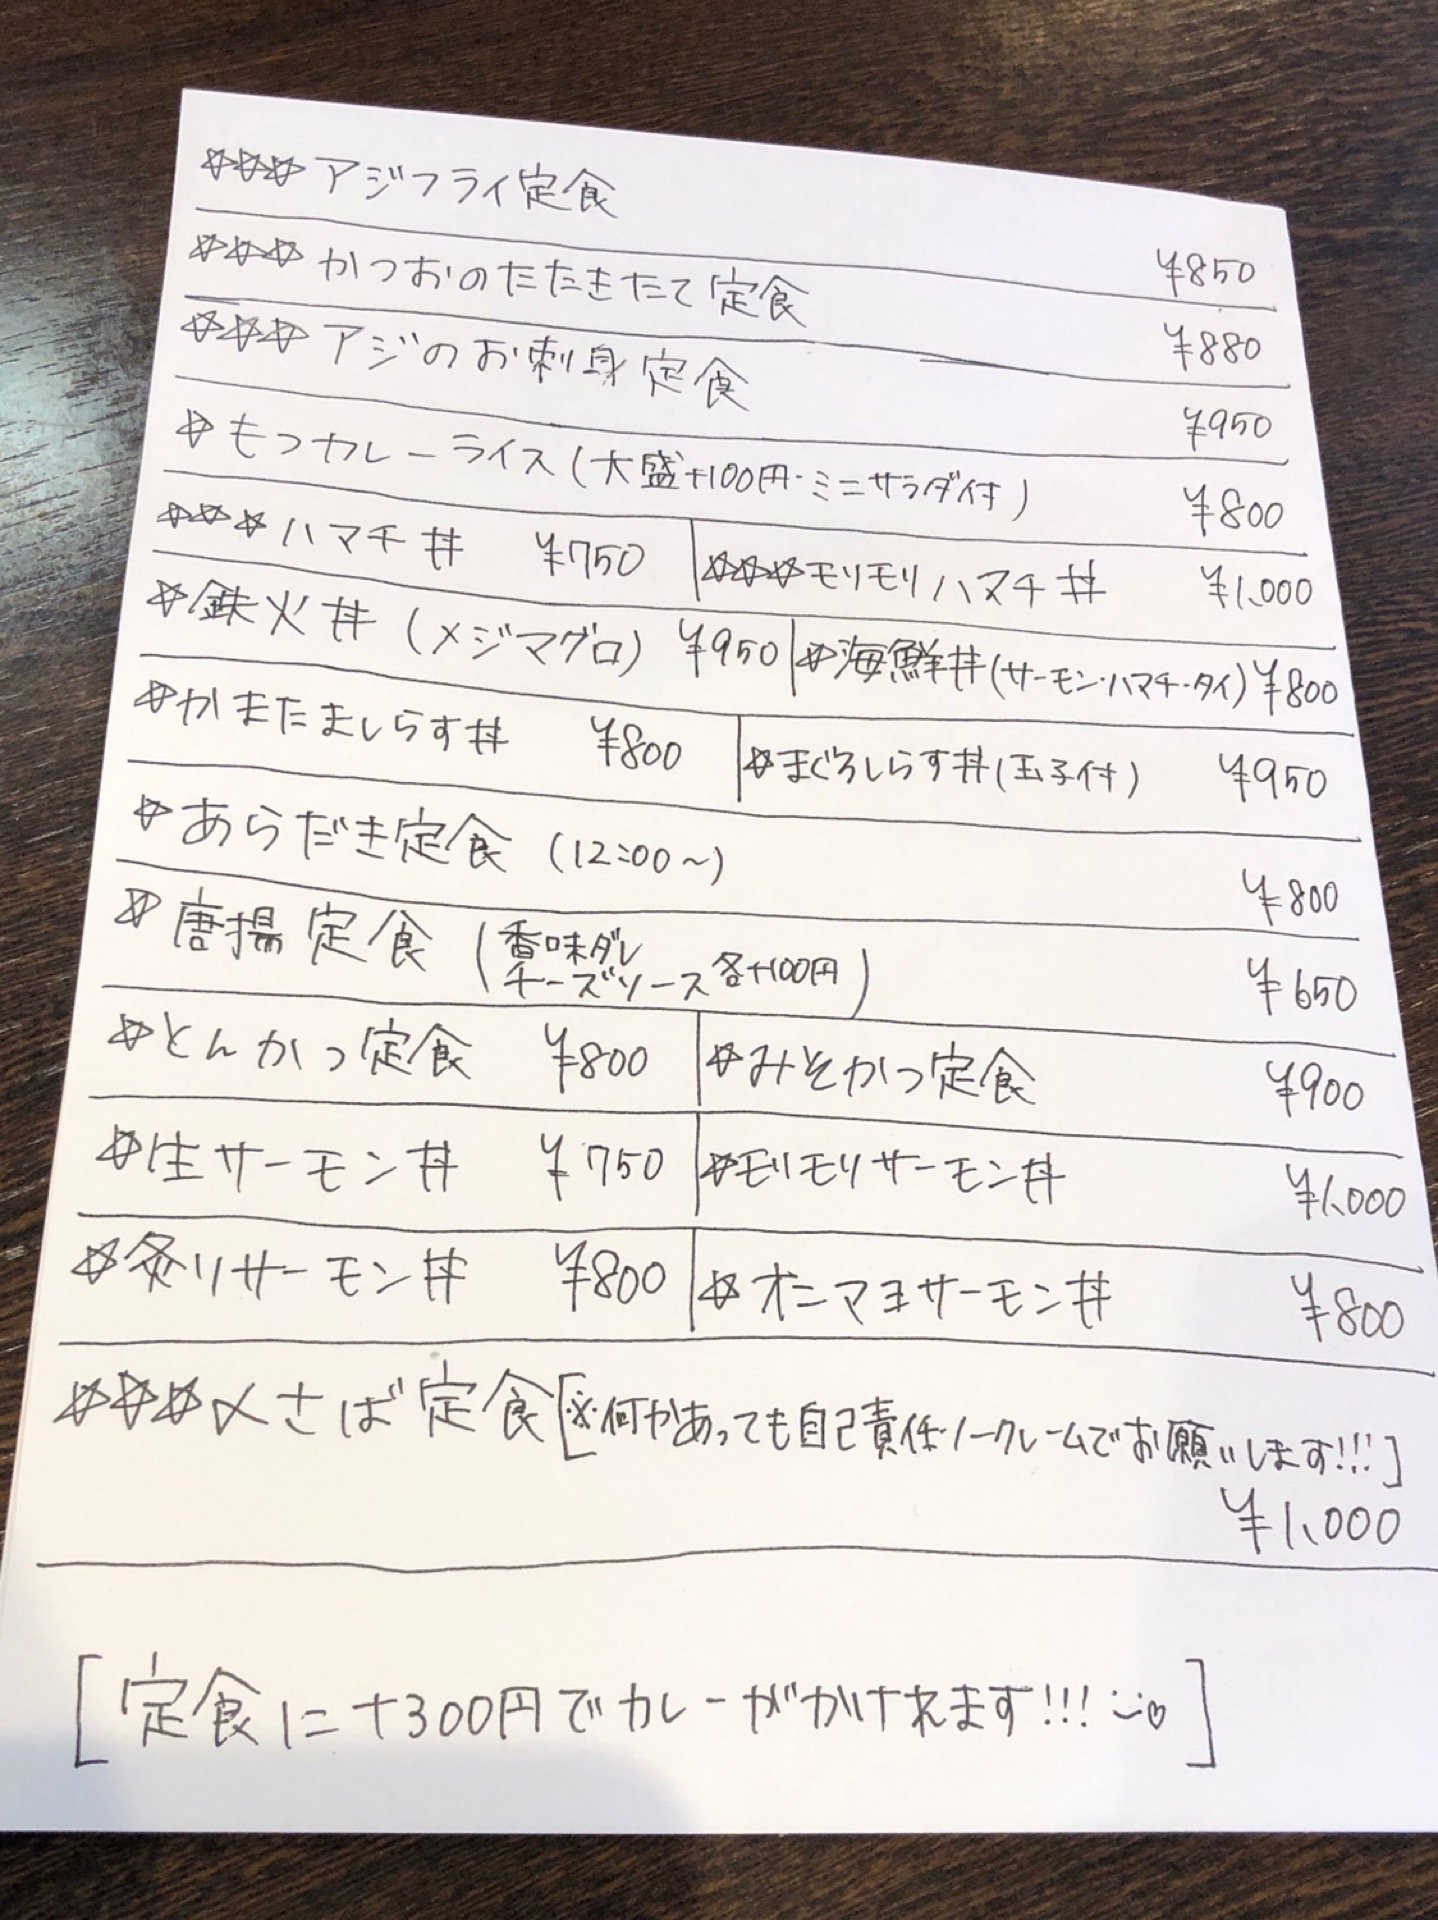 ☆☆☆アジフライ定食 ¥850
☆☆☆かつおのたたきたて定食 ¥880
☆☆☆アジのお刺身定食 ¥950
☆もつカレーライス(大盛+100円・ミニサラダ付) ¥800
☆☆☆ハマチ丼 ¥750 ☆☆☆モリモリハマチ丼 ¥1,000
☆鉄火丼(メジマグロ) ¥950 ☆海鮮丼(サーモン・ハマチ・タイ) ¥800
☆かまたましらす丼 ¥800 ☆まぐろしらす丼(玉子付) ¥950
☆あらだき定食(12:00〜) ¥800
☆唐揚定食(香味ダレ
チーズソース各+100円) ¥650
☆とんかつ定食 ¥800 ☆みそかつ定食 ¥900
☆生サーモン丼 ¥750 ☆モリモリサーモン丼 ¥1,000
☆炙りサーモン丼 ¥800 ☆オニマヨサーモン丼 ¥800
☆☆☆〆さば定食[※何かあっても自己責任・ノークレームでお願いします!!!]
¥1,000
[定食に+300円でカレーがかけれます!!! ♡]